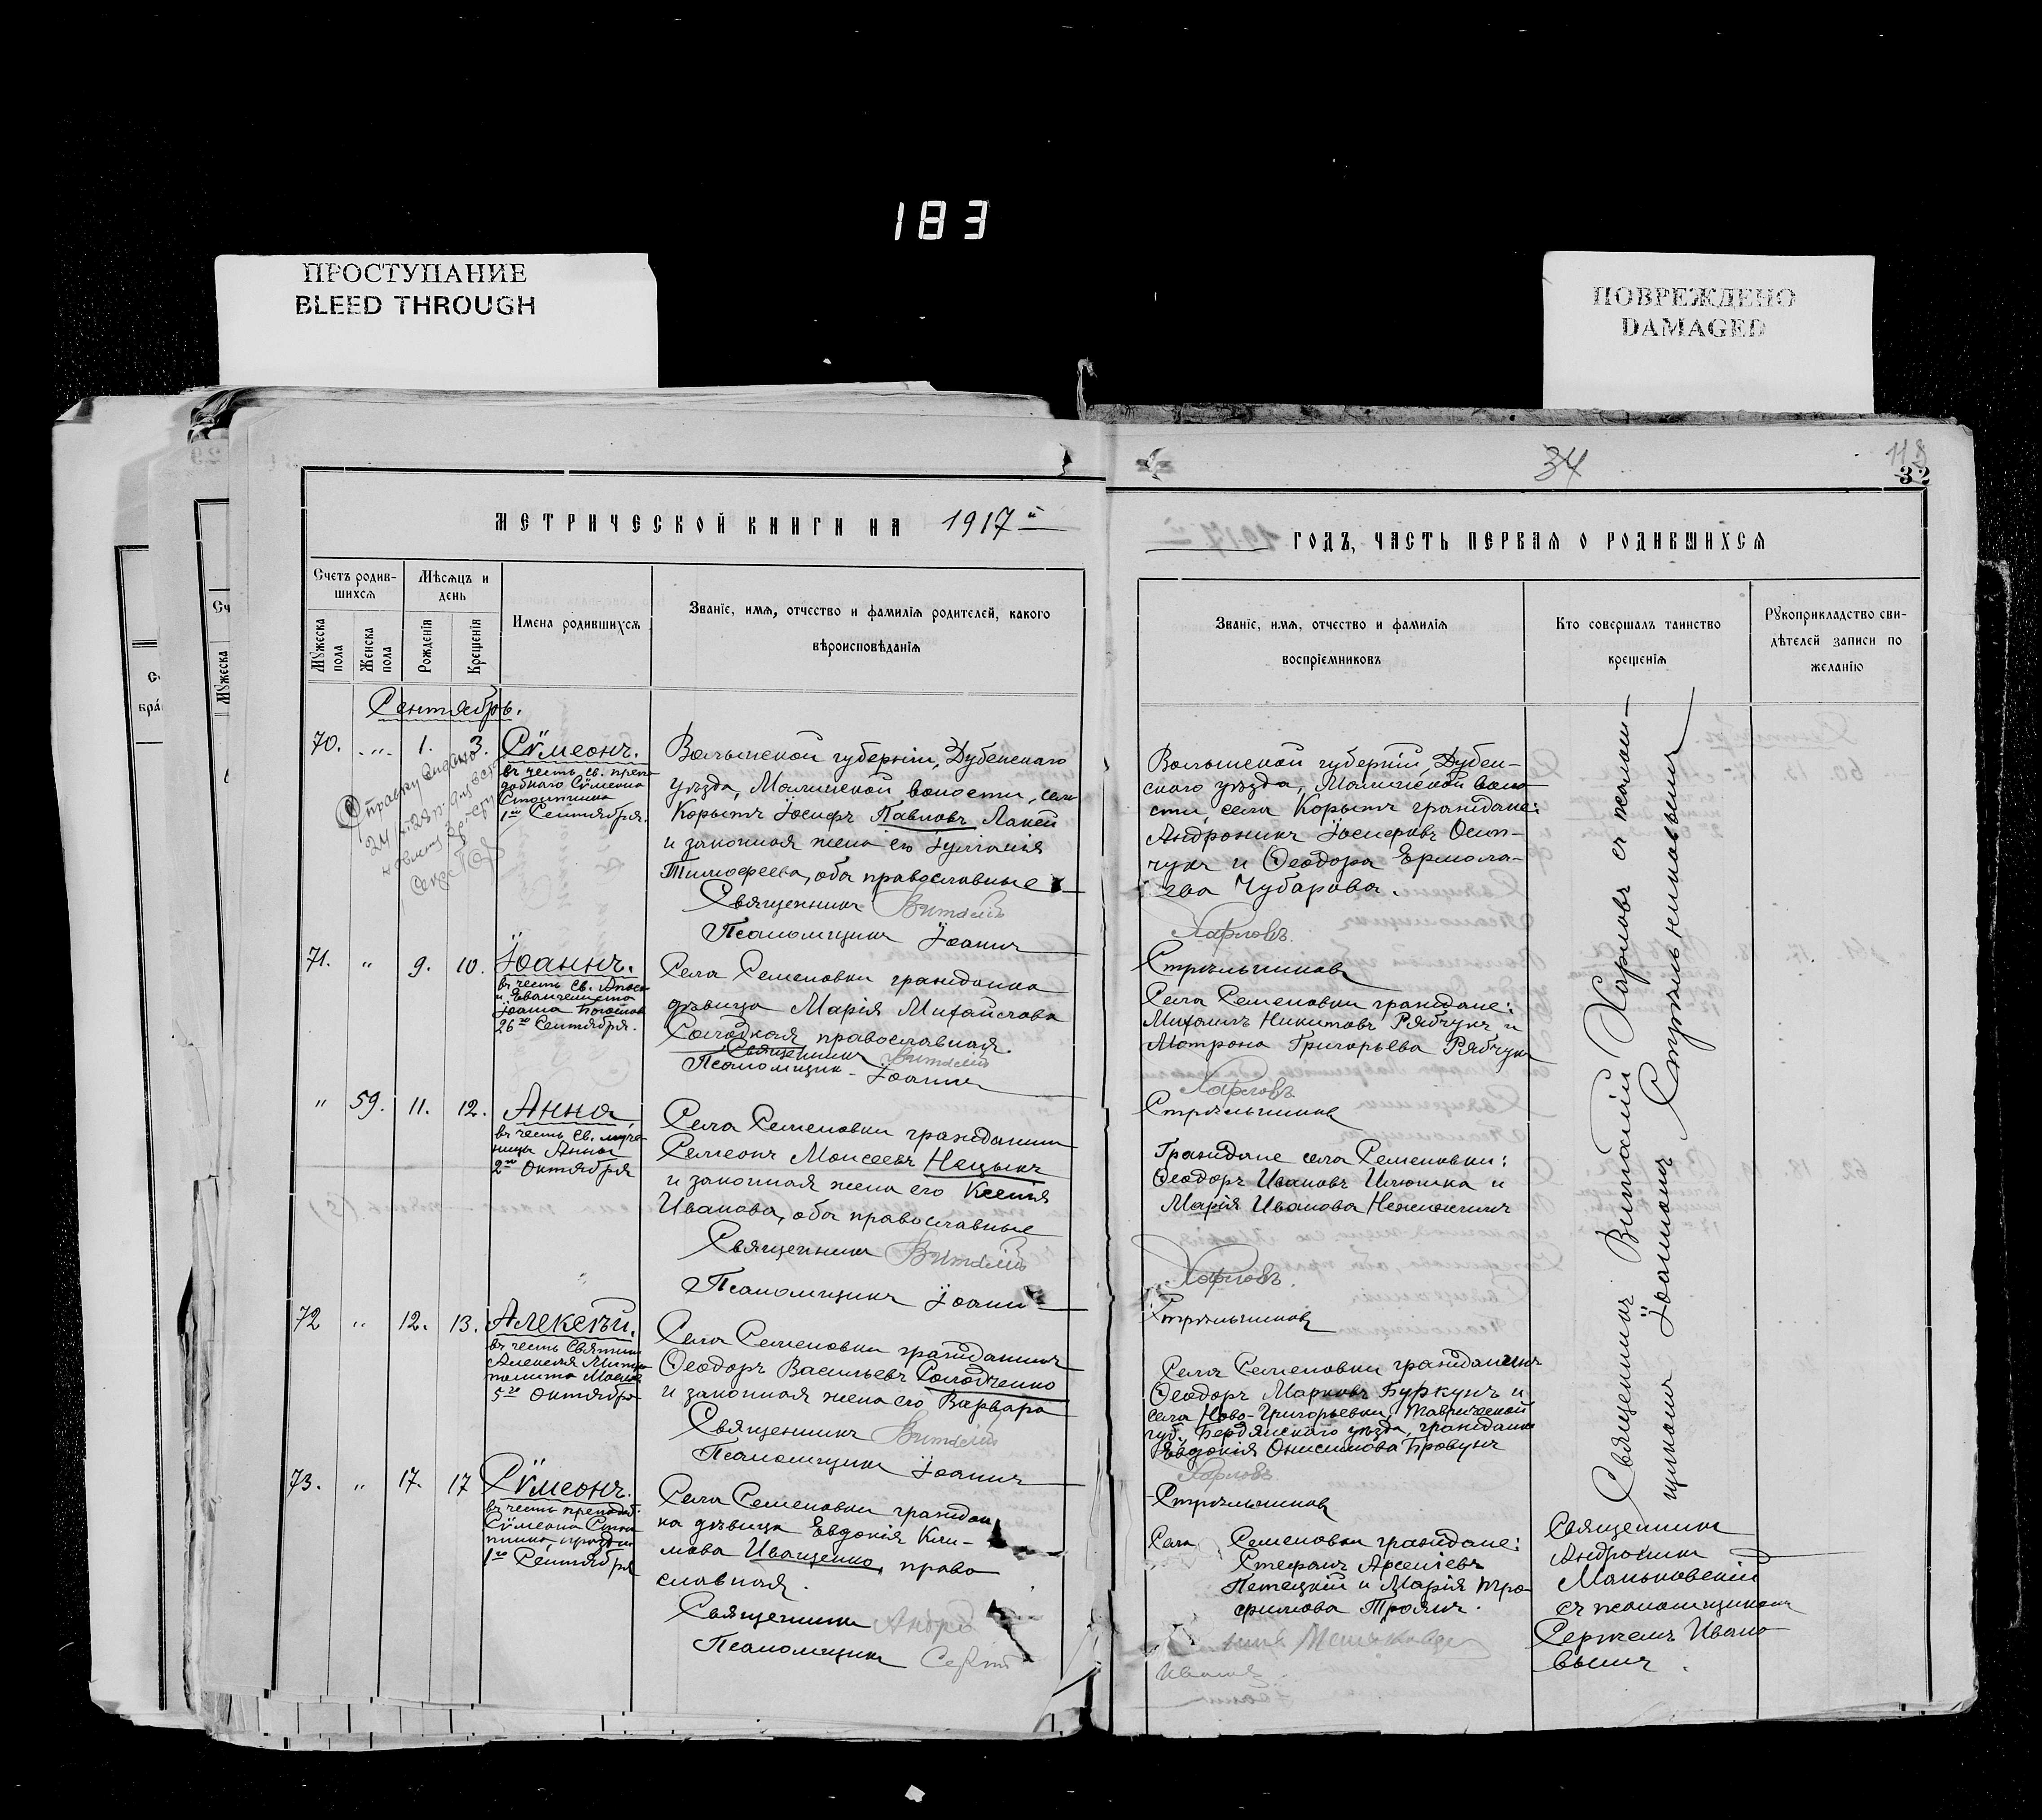 183
ПРОСТУПАНИЕ
BLEED THROUGH
ПОВРЕЖДЕНО
DAMAGED
МЕТРИЧЕСКОЙ КНИГИ НА 1917 й
Счетъ родив-
шихся
Мѣсяцъ и
день
Мужеска
пола
Женска
пола
Рожденія
Крещенія
Имена родившихся
Званіе, имя, отчество и фамилія родителей, какого
вѣроисповѣданія
Сентябрь.
70. " 1. 3. Сѵмеонъ.
въ честь св. препо
добнаго Сѵмеона
Столпника
1го Сентября.
Волынской губерніи, Дубенскаго
уѣзда, Малинской волости, села
Корытъ Іосифъ Павловъ Лакей
и законная жена его Іуліанія
Тимофеева, оба православные
Священникъ Виталій
Псаломщикъ Іоаннъ
71. " 9. 10. Іоаннъ.
въ честь св. Апост
и Евангелиста
Іоанна Богослова
26го Сентября.
Села Семеновки гражданка
дѣвица Марія Михайлова
Солодкая, православная.
Священникъ Виталій
Псаломщик- Іоаннъ
" 59. 11. 12. Анна
въ честь св. муче-
ницы Анны
2го Октября
Села Семеновки гражданинъ
Семеонъ Моисеевъ Нецыкъ
и законная жена его Ксенія
Иванова, оба православные
Священникъ Виталій
Псаломщикъ Іоаннъ
72 " 12. 13. Алексѣй.
въ честь Святит
Алексія Митро
полита Москов
5го Октября
Села Семеновки гражданинъ
Ѳеодоръ Васильевъ Солодченко
и законная жена его Варвара
Священникъ Виталій
Псаломщикъ Іоаннъ
73. " 17. 17 Сѵмеонъ.
въ честь преподоб.
Сѵмеона Столп
1го Сентября
Села Семеновки граждан
ка дѣвица Евдокія Кли-
мова Иващенко, право
славная.
Священникъ Андро
Псаломщикъ Сергій
34
32
1917 й ГОДЪ, ЧАСТЬ ПЕРВАЯ О РОДИВШИХСЯ
Званіе, имя, отчество и фамилія
воспріемниковъ
Кто совершалъ таинство
крещенія
Рукоприкладство сви-
дѣтелей записи по
желанію
Волынской губерніи, Дубен-
скаго уѣзда, Малинской воло
сти, села Корытъ граждане:
Андроникъ Іосифовъ Осип-
чукъ и Ѳеодора Ермола-
ева Чубарова.
Харловъ.
Стрѣльниковъ
Села Семеновки граждане:
Михаилъ Никитовъ Рябчукъ и
Матрона Григорьева Рябчукъ
Харловъ
Стрѣльниковъ
Граждане села Семеновки:
Ѳеодоръ Ивановъ Илюшка и
Марія Иванова
Харловъ.
Стрѣльниковъ
Села Семеновки гражданинъ
Ѳеодоръ Марковъ Буркунъ и
села Ново-Григорьевки, Таврической
губ., Бердянскаго уѣзда, гражданка
Евдокія Онисимова Бровунъ
Харловъ.
Стрѣльниковъ
Села Семеновки граждане:
Стефанъ Арсеніевъ
Петецкій и Марія Тро
фимова Троянъ.
Маньковскій
Священникъ Виталій Харловъ съ псалом-
щикомъ Іоанномъ Стрѣльниковымъ
Священникъ
Андроникъ
Маньковскій
съ псаломщикомъ
Сергіемъ Ивано
вымъ.